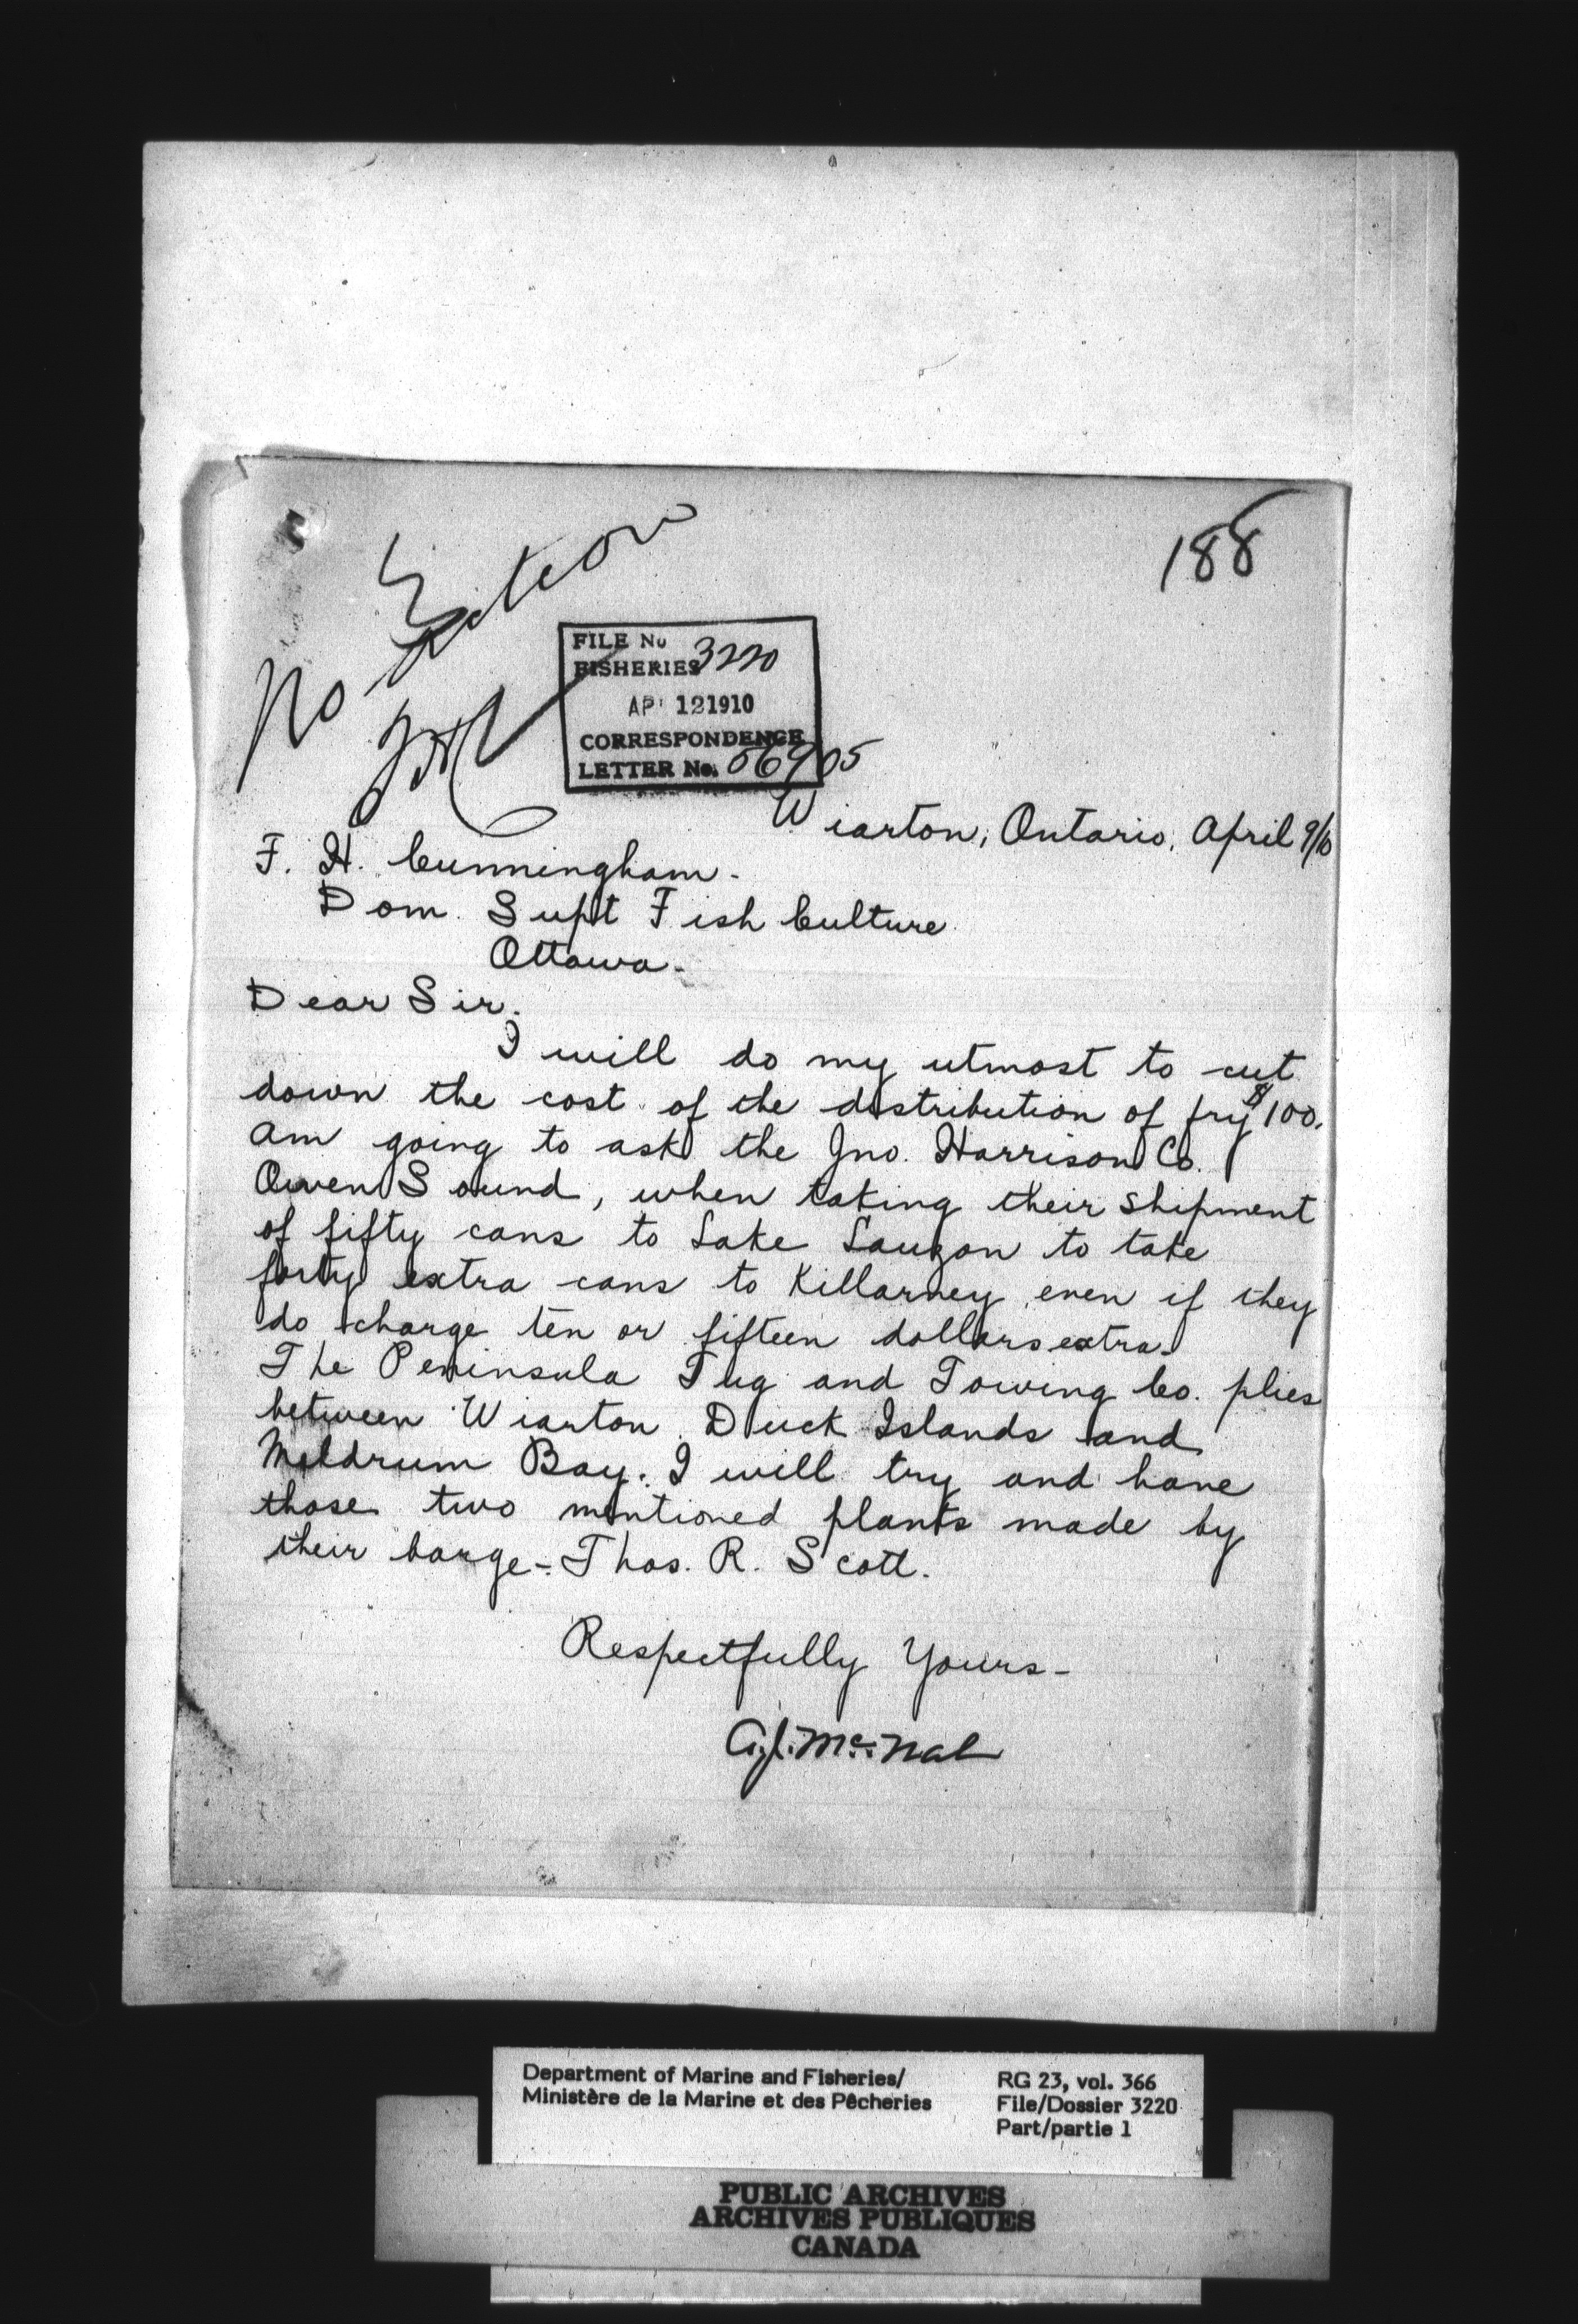 188
No action
FILE No
FISHERIES 3220
AP 12 1910
CORRESPONDENCE
LETTER No.
Wiarton, Ontario, April 9/10
F. H. Cunningham.
Dom. Supt Fish Culture
Ottawa.
Dear Sir.
I will do my utmost to cut
down the cost of the distribution of fry $100.
Am going to ask the Jno. Harrison Co.
Owen Sound, when taking their shipment
of fifty cans to Lake Lauzon to take
forty extra cans to Killarney even if they
do charge ten or fifteen dollars extra.
The Peninsula Tug and Towing Co. plies
between Wiarton Duck Islands and
Meldrum Bay. I will try and have
those two mentioned plants made by
their barge - Thos. R. Scott.
Respectfully Yours -
A.J. McNab
Department of Marine and Fisheries/
Ministère de la Marine et des Pêcheries
RG 23, vol. 366
File/Dossier 3220
Part/partie 1
PUBLIC ARCHIVES
ARCHIVES PUBLIQUES
CANADA